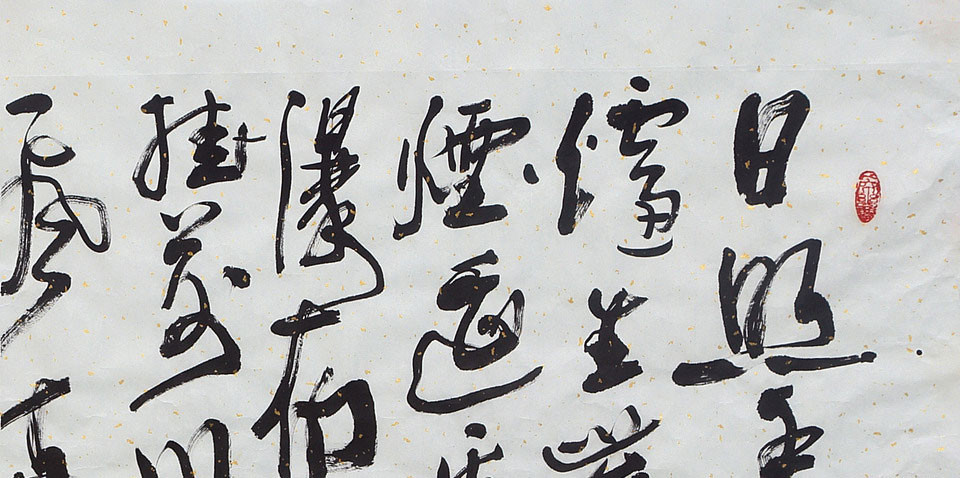 日照香
爐生紫
煙遙看
瀑布
掛前川